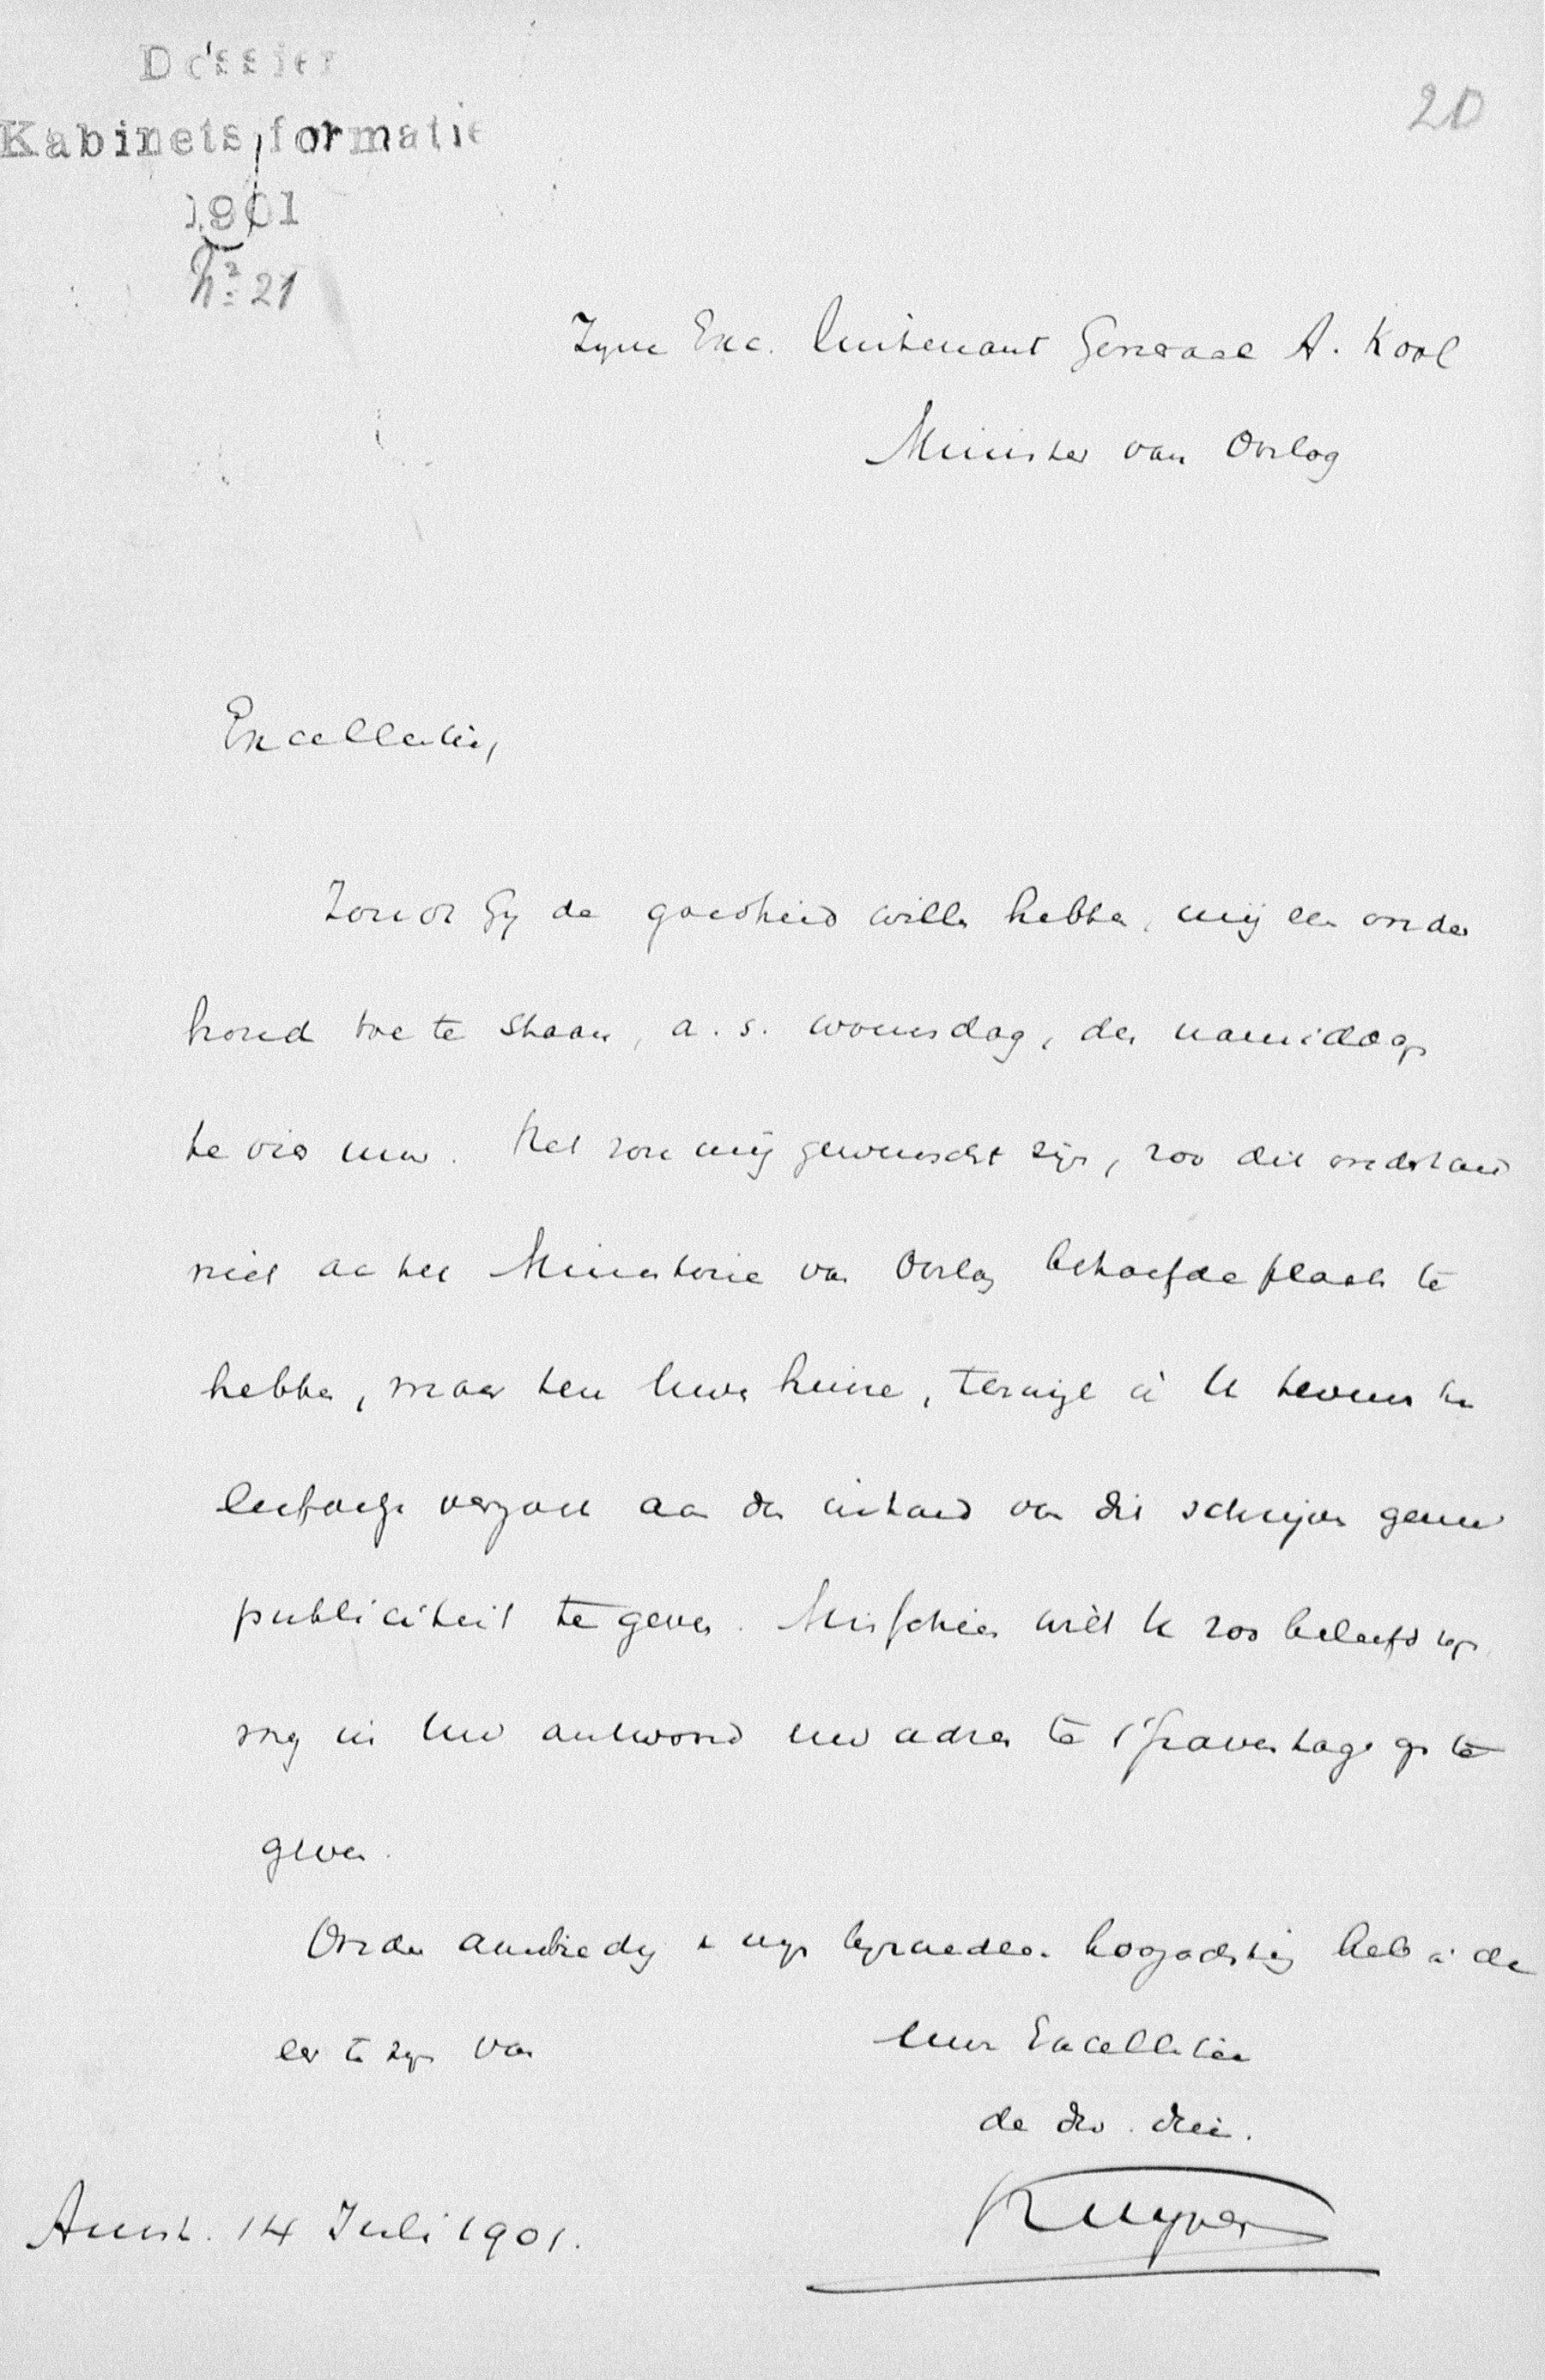 Dossier
Kabinets formatie
1901
No 21
20
Zyne Exc. Luitenant Generaal A. Kool
Minister van Oorlog
Excellentie,
Zoudt Gy de goedheid willen hebben, mij een onder
houd toe te staan, a. s. woensdag, des namiddags
te vier uur. Het zou mij gewenscht zijn, zoo dit onderhoud
niet aan het Ministerie van Oorlog behoefde plaats te
hebben, maar ten Uwen huize, terwijl ik U tevens ten
verzoek aan den inhoud van dit schrijven geene
publiciteit te geven. Misschien wilt U zoo beleefd zijn
mij in Uw antwoord uw adres te 's Gravenhage op te
geven.
Onder aanbieding van mijn byzondere hoogachting heb ik de
eer te zijn van
Uwe Excellentie
de dw. dien.
Kuyper
Amst. 14 Juli 1901.